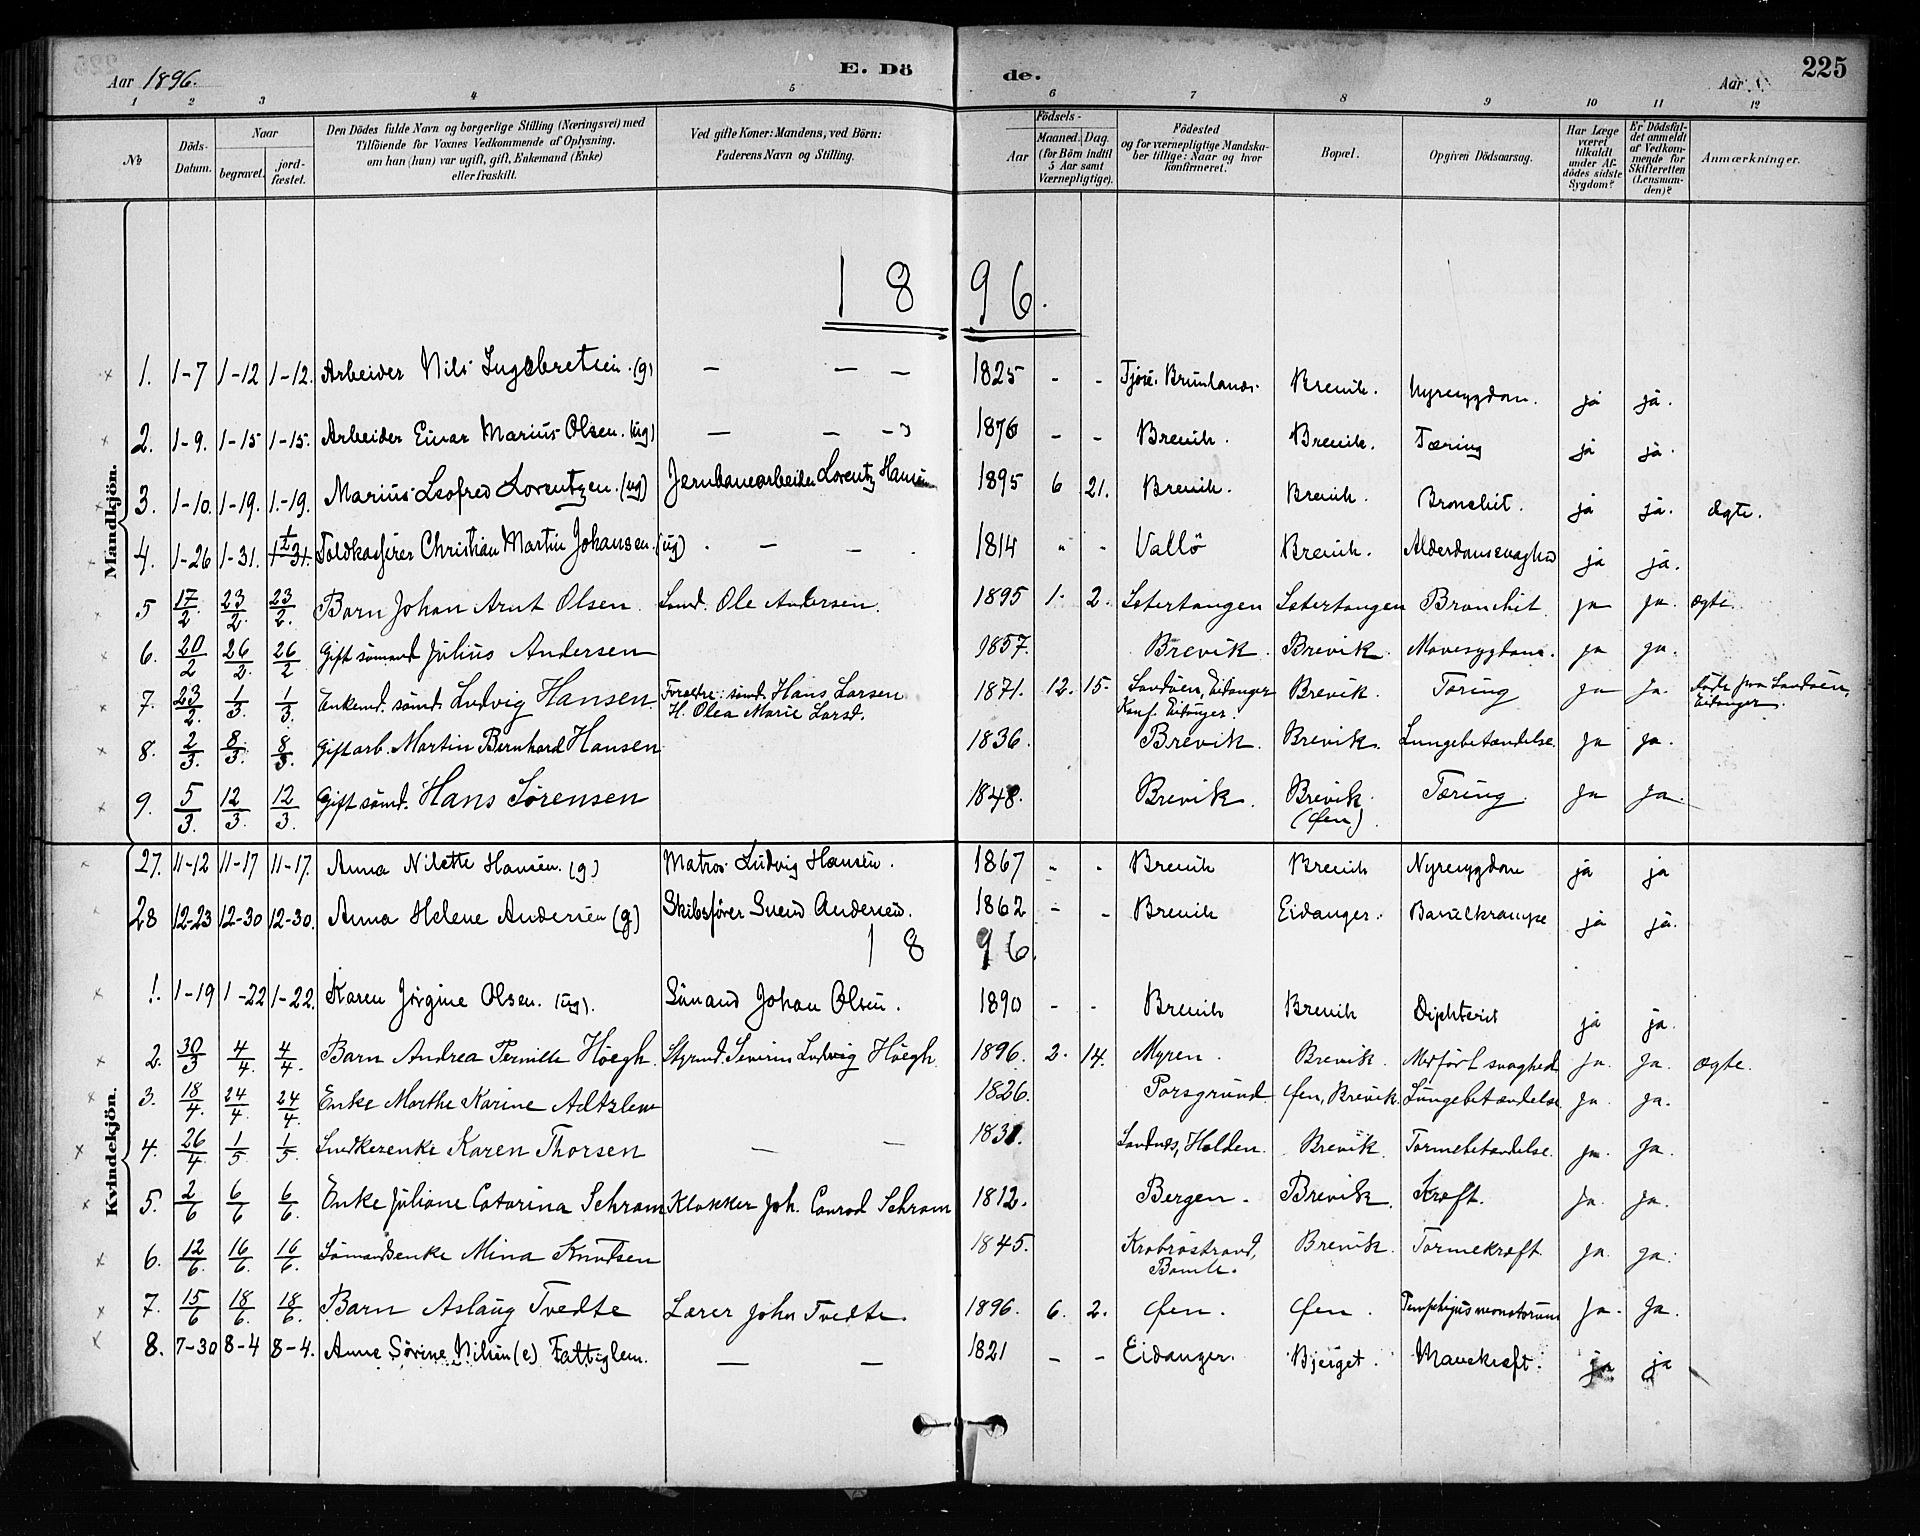 Aar 1896.
E. Dö
de.
Aar
225
1 2 3 4 5 6 7 8 9 10 11 12
No
Döds-Datum.
Naar
begravet.
jord-fæstet.
Den Dödes fulde Navn og borgerlige Stilling (Næringsvei) med
Tilföiende for Voxnes Vedkommende af Oplysning,
om han (hun) var ugift, gift, Enkemand (Enke)
eller fraskilt.
Ved gifte Koner: Mandens, ved Börn:
Faderens Navn og Stilling.
Födsels-
Aar
Maaned. Dag.
(for Börn indtil
5 Aar samt
Værnepligtige).
Födested
og for værnepligtige Mandska-
ber tillige: Naar og hvor
konfirmeret.
Bopæl.
Opgiven Dödsaarsag.
Har Læge
været
tilkaldt
under Af-
dödes sidste
Sygdom?
Er Dödsfal-
det anmeldt
af Vedkom-
mende for
Skifteretten
(Lensman-
den)?
Anmærkninger.
18 96.
Mandkjön.
1. 1-7 1-12 1-12. Arbeider Nils Ingebretsen (g) — — — 1825 - - Tjøse, Brunlanes. Brevik. Nyresygdom. ja ja.
2. 1-9. 1-15 1-15. Arbeider Einar Marius Olsen. (ug) — — - 1876 - - Brevik. Brevik. Tæring ja ja.
3. 1-10. 1-19. 1-19. Marius Leofred Lorentzen. (ug) Jernbanearbeider Lorentz Hansen 1895 6 21. Brevik. Brevik. Bronchit. ja ja. ægte.
4. 1-26 1-31. 1-31. Toldkasserer Christian Martin Johansen. (ug) . — — . 1814 - - Vallö Brevik. Alderdomssvaghed ja ja.
5 17/2. 23/2. 23/2. Barn Johan Arnt Olsen. Sømd. Ole Andersen. 1895 1. 2. Setertangen Setertangen Bronchit ja ja. ægte.
6. 20/2 26/2 26/2 Gift sömand Julius Andersen 1857. Brevik. Brevik. Mavesygdom. ja ja.
7. 23/2. 1/3. 1/3. Enkemd. sömd. Ludvig Hansen. Foreldre: sömd. Hans Larsen
H. Olea Marie Larsd. 1871. 12. 15. Sandöen, Eidanger
Konf. Eidanger. Brevik. Tæring ja ja. Døde paa Sandöen,
Eidanger.
8. 2/3. 8/3. 8/3. Gift arb. Martin Bernhard Hansen 1836. Brevik. Brevik. Lungebetændelse. ja ja.
9. 5/3. 12/3. 12/3. Gift sömd. Hans Sörensen 1848. Brevik. Brevik.
(Øen). Tæring. ja ja.
Kvindekjön.
27. 11-12 11-17 11-17. Anna Nilette Hansen. (g) Matros Ludvig Hansen. 1867 - - Brevik Brevik Nyresygdom ja ja
28 12-23 12-30 12-30. Anna Helene Andersen (g) Skibsfører Svend Andersen. 1862 - - Brevik Eidanger. Barselkrampe ja ja.
18 96.
1. 1-19 1-22 1-22. Karen Jørgine Olsen. (ug). Sömand Johan Olsen. 1890 - - Brevik Brevik Diphterit ja ja.
2. 30/3 4/4. 4/4. Barn Andrea Pernille Höegh. Styrmd. Severin Ludvig Höegh 1896. 2. 14. Myren. Brevik Medfört svaghed ja. ja. ægte.
3. 18/4. 24/4. 24/4. Enke Marthe Karine 1826. Porsgrund Øen, Brevik. Lungebetændelse ja. ja.
4. 26/4 1/5 1/5. Snedkerenke Karen Thorsen — — 1831. Sandnæs, Holden. Brevik. Tarmebetændelse. ja. ja.
5. 2/6 6/6 6/6. Enke Juliane Catarina Schram Klokker Joh. Conrad Schram 1812. Bergen. Brevik. Kræft. ja. ja.
6. 12/6. 16/6. 16/6. Sömandsenke Mina Knudsen 1845. Krabröstrand,
Bamle. Brevik. Tarmekræft ja. ja.
7. 15/6. 18/6. 18/6. Barn Aslaug Tvedte Lærer John Tvedte. 1896. 6. 2. Øen. Øen. Pemphigus neonatorum ja. ja.
8. 7-30 8-4 8-4. Anne Sørine Nilsen (e) Fattiglem. — — 1821 - - Eidanger. Bjerget. Mavekræft. ja ja